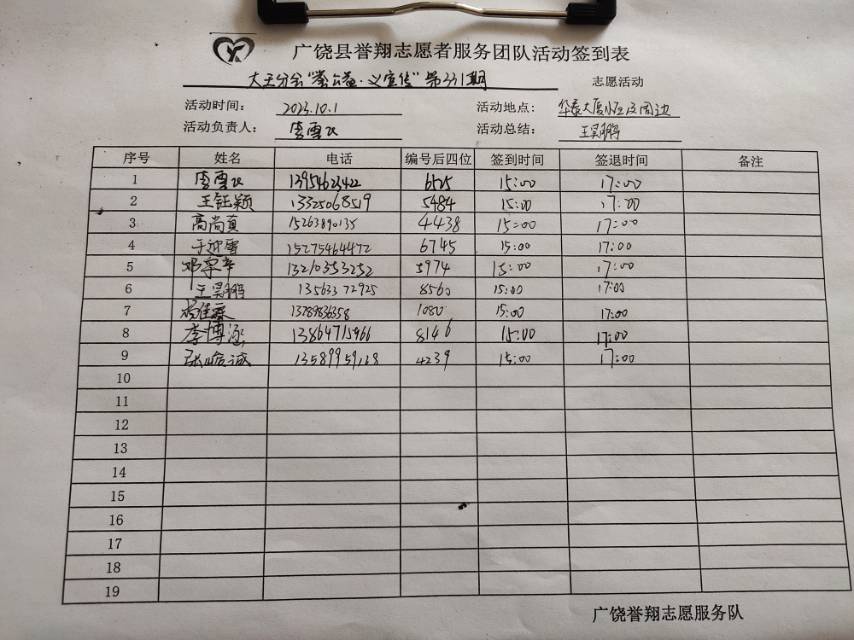 广饶县誉翔志愿者服务团队活动签到表
大王分会 义宣传" 第331期 志愿活动
活动时间: 2023.10.1 活动地点: 华泰大厦 及周边
活动负责人: 活动总结: 王昊鹏
序号 姓名 电话 编号后四位 签到时间 签退时间 备注
1 13954623422 15:00 17:00
2 王钰颖 13325068519 5484 15:00 17:00
3 高尚真 15263890135 4438 15:00 17:00
4 于迎雪 15275464472 6745 15:00 17:00
5 13210353252 5974 15:00 17:00
6 王昊鹏 13563372925 8560 15:00 17:00
7 13789836358 1080 15:00 17:00
8 李博涵 13864715966 8146 15:00 17:00
9 13589959168 4239 15:00 17:00
10
11
12
13
14
15
16
17
18
19
广饶誉翔志愿服务队